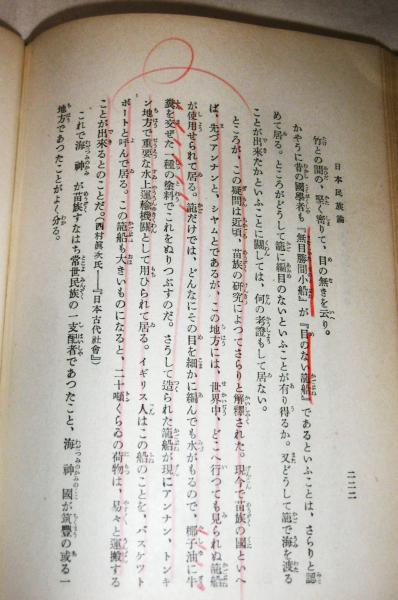 日本民族論
二二二
竹との間の、堅く密りて、目の無きを云り。
かやうに昔の國學者も『無目勝間小船』が『目のない籠船』であるといふことは、さらりと認
めて居る。ところがどうして籠に編目のないといふことが有り得るか。又どうして籠で海を渡る
ことが出來たかといふことに關しては、何の考證もして居ない。
ところが、この疑問は近頃、苗族の研究によつてさらりと解釋された。現今で苗族の國といへ
ば、先づアンナンと、シヤムとであるが、この地方には、世界中、どこへ行つても見られぬ籠船
が使用せられて居る。籠だけでは、どんなにその目を細かに編んでも水がもるので、椰子油に牛
糞を交ぜた一種の塗料でこれをぬりつぶすのだ。さうして造られた籠船が現にアンナン、トンキ
ン地方で重要な水上運輸機關として用ひられて居る。イギリス人はこの船のことを、バスケツト
ボートと呼んで居る。この籠船も大きいものになると、二十噸くらゐの荷物は、易々と運搬する
ことが出來るとのことだ。（西村眞次氏――『日本古代社會』）
これで海神が苗族すなはち常世民族の一支配者であつたこと、海神國が筑豐の或る一
地方であつたことがよく分る。